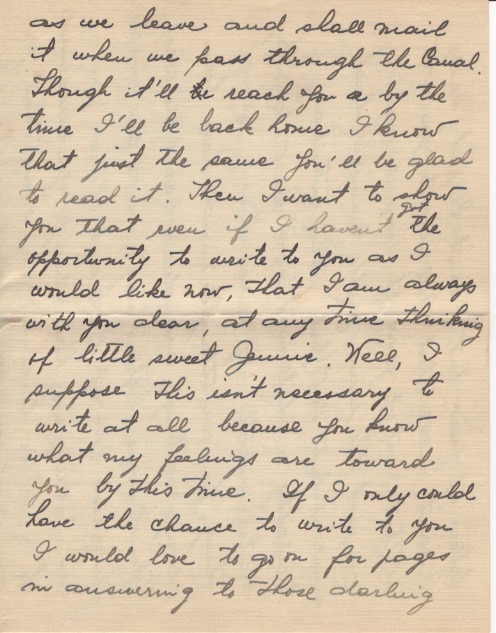 as we leave and shall mail
it when we pass through the Canal.
Though it'll reach you by the
time I'll be back home I know
that just the same you'll be glad
to read it. Then I want to show
you that even if I haven't got the
opportunity to write to you as I
would like now, that I am always
with you dear, at any time thinking
of little sweet Jennie. Well, I
suppose this isn't necessary to
write at all because you know
what my feelings are toward
you by this time. If I only could
have the chance to write to you
I would love to go on for pages
in answering to those darling